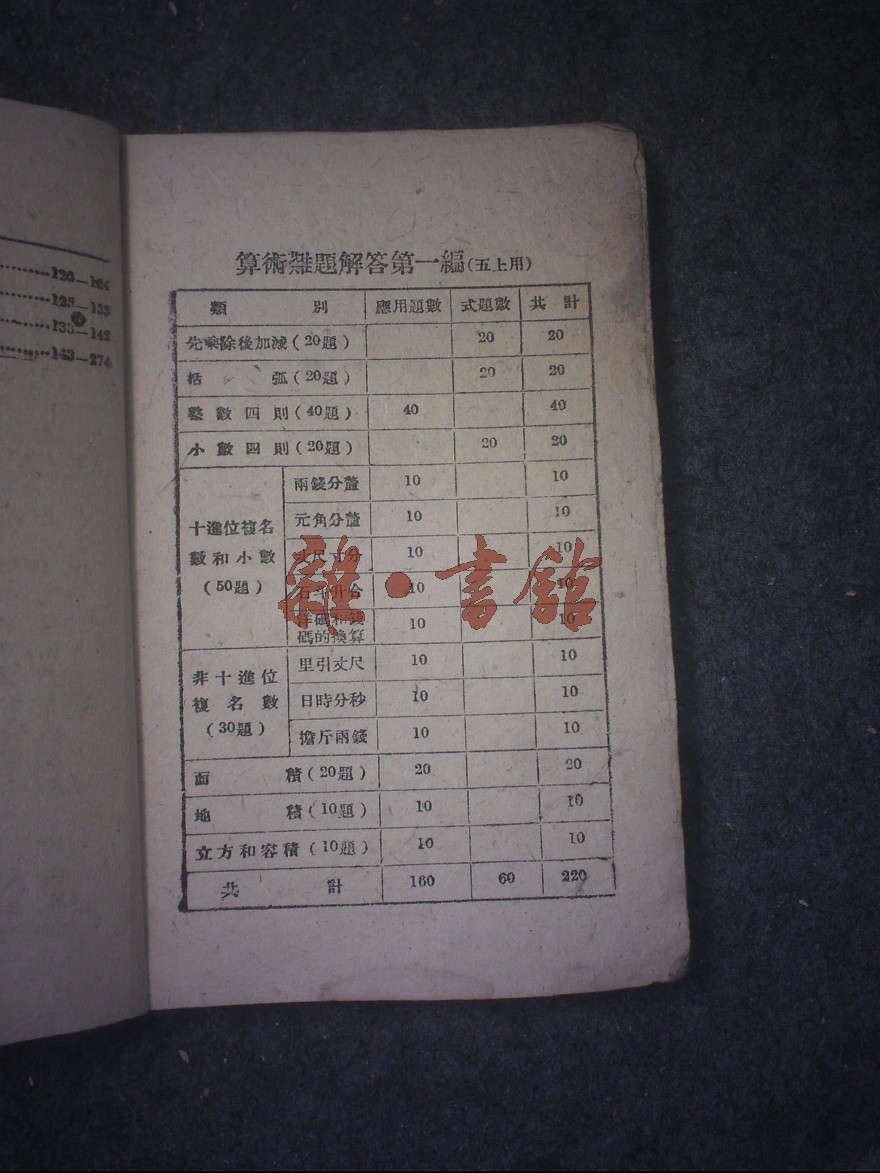 120—124
125—133
133—142
143—274
算術難題解答第一編(五上用)
類別 應用題數 式題數 共計
先乘除後加減(20題) 20 20
括弧(20題) 20 20
整數四則(40題) 40 40
小數四則(20題) 20 20
十進位複名數和小數(50題)
兩錢分釐 10 10
元角分釐 10 10
丈尺寸分 10 10
石斗升合 10 10
洋碼和錢碼的換算 10 10
非十進位複名數(30題)
里引丈尺 10 10
日時分秒 10 10
擔斤兩錢 10 10
面積(20題) 20 20
地積(10題) 10 10
立方和容積(10題) 10 10
共計 160 60 220
雜·書館